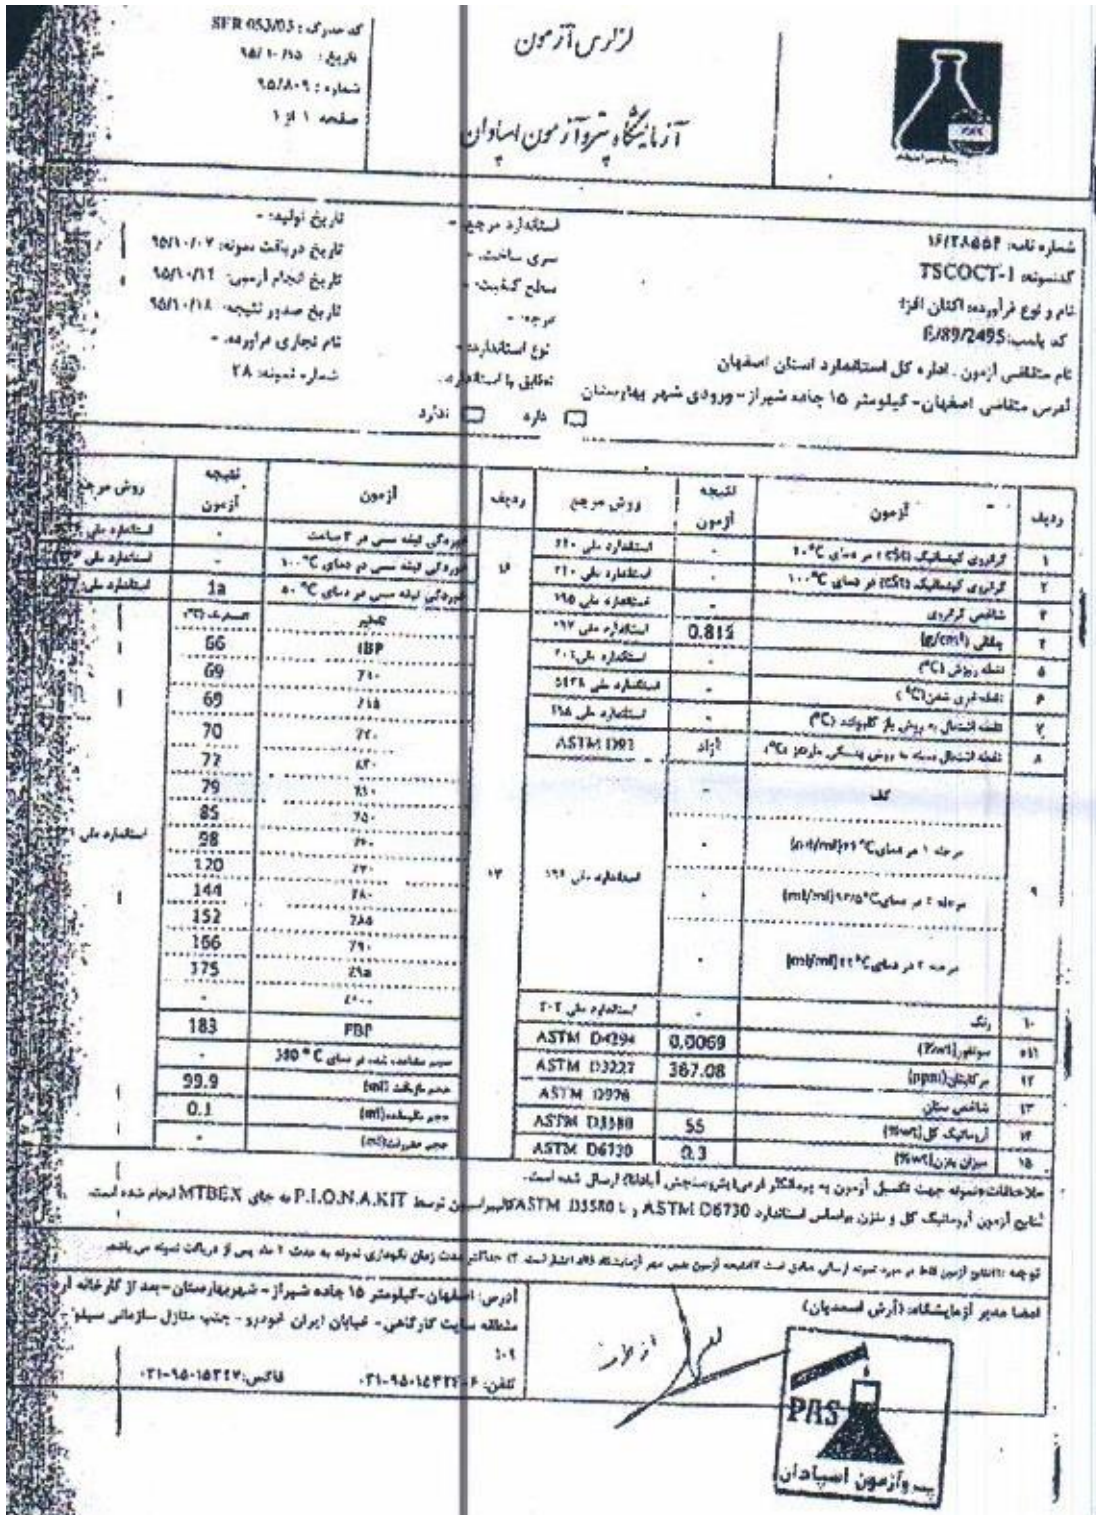 گزارش آزمون
آزمایشگاه پتروآزمون اسپادان
کد مدرک : SFR 053/03
تاریخ : ۹۵/۱۰/۱۵
شماره : ۹۵/۸۰۹
صفحه ۱ از ۱
شماره نامه: ۱۶/۲۸۵۵۴
کدنمونه: TSCOCT-1
نام و نوع فرآورده: اکتان افزا
کد پلمپ: E/89/2495
نام متقاضی آزمون . اداره کل استاندارد استان اصفهان
آدرس متقاضی اصفهان- کیلومتر ۱۵ جاده شیراز - ورودی شهر بهارستان
استاندارد مرجع: -
سری ساخت: -
سطح کیفیت: -
درجه: -
نوع استاندارد: -
تطابق با استاندارد:
دارد ندارد
تاریخ تولید: -
تاریخ دریافت نمونه: ۹۵/۱۰/۰۷
تاریخ انجام آزمون: ۹۵/۱۰/۱۴
تاریخ صدور نتیجه: ۹۵/۱۰/۱۸
نام تجاری فراورده: -
شماره نمونه: ۲۸
ردیف آزمون نتیجه آزمون روش مرجع ردیف آزمون نتیجه آزمون روش مرجع
۱ گرانروی کینماتیک (cSt) در دمای ۴۰°C - استاندارد ملی
۲ گرانروی کینماتیک (cSt) در دمای ۱۰۰°C - استاندارد ملی
۳ شاخص گرانروی - استاندارد ملی ۱۹۵
۴ چگالی (g/cm³) 0.815 استاندارد ملی ۱۹۷
۵ نقطه ریزش (°C) - استاندارد ملی ۲۰۱
۶ نقطه ابری شدن (°C) - استاندارد ملی ۵۴۳۸
۷ نقطه اشتعال به روش باز کلیولند (°C) - استاندارد ملی ۱۹۸
۸ نقطه اشتعال بسته به روش پنسکی مارتنز (°C) آزاد ASTM D93
۹ کف - استاندارد ملی
مرحله ۱ در دمای ۲۴°C (ml/ml) -
مرحله ۲ در دمای ۹۳/۵°C (ml/ml) -
مرحله ۳ در دمای ۲۴°C (ml/ml) -
۱۰ رنگ - استاندارد ملی ۲۰۳
۱۱ سولفور (%wt) 0.0069 ASTM D4294
۱۲ مرکاپتان (ppm) 367.08 ASTM D3227
۱۳ شاخص ستان ASTM D976
۱۴ آروماتیک کل (%wt) 55 ASTM D5580
۱۵ میزان بنزن (%wt) 0.3 ASTM D6730
خوردگی تیغه مسی در ۳ ساعت - استاندارد ملی
۱۶ خوردگی تیغه مسی در دمای ۱۰۰°C - استاندارد ملی
خوردگی تیغه مسی در دمای ۵۰°C 1a استاندارد ملی
۱۷ تقطیر
IBP 66
٪۱۰ 69
٪۱۵ 69
٪۲۰ 70
٪۳۰ 72
٪۴۰ 79
٪۵۰ 85
٪۶۰ 98
٪۷۰ 120
٪۸۰ 144
٪۸۵ 152
٪۹۰ 166
٪۹۵ 175
٪۱۰۰ -
FBP 183
استاندارد ملی
درصد مشاهده شده در دمای 380°C -
حجم بازیافت (ml) 99.9
حجم باقیمانده (ml) 0.1
حجم هدررفت (ml) -
ملاحظات: نمونه جهت تکمیل آزمون به پیمانکار فرعی (پتروسنجش آپادانا) ارسال شده است.
نتایج آزمون آروماتیک کل و بنزن براساس استاندارد ASTM D6730 و با ASTM D5580 کالیبراسیون توسط P.I.O.N.A.KIT به جای MTBEX انجام شده است.
توجه : ۱) نتایج آزمون فقط در مورد نمونه ارسالی صادق است ۲) نتیجه آزمون بدون مهر آزمایشگاه فاقد اعتبار است. ۳) حداکثر مدت زمان نگهداری نمونه به مدت ۱ ماه پس از دریافت نمونه می باشد.
امضا مدیر آزمایشگاه: (آرش اسعدیان)
آدرس: اصفهان-کیلومتر ۱۵ جاده شیراز - شهربهارستان-بعد از کارخانه
منطقه سایت کارگاهی- خیابان ایران خودرو - جنب منازل سازمانی سیلو
۱۰۹
تلفن: ۰۳۱-۹۵۰۱۵۳۲۴-۶
فاکس: ۰۳۱-۹۵۰۱۵۳۴۷
PAS
پتروآزمون اسپادان